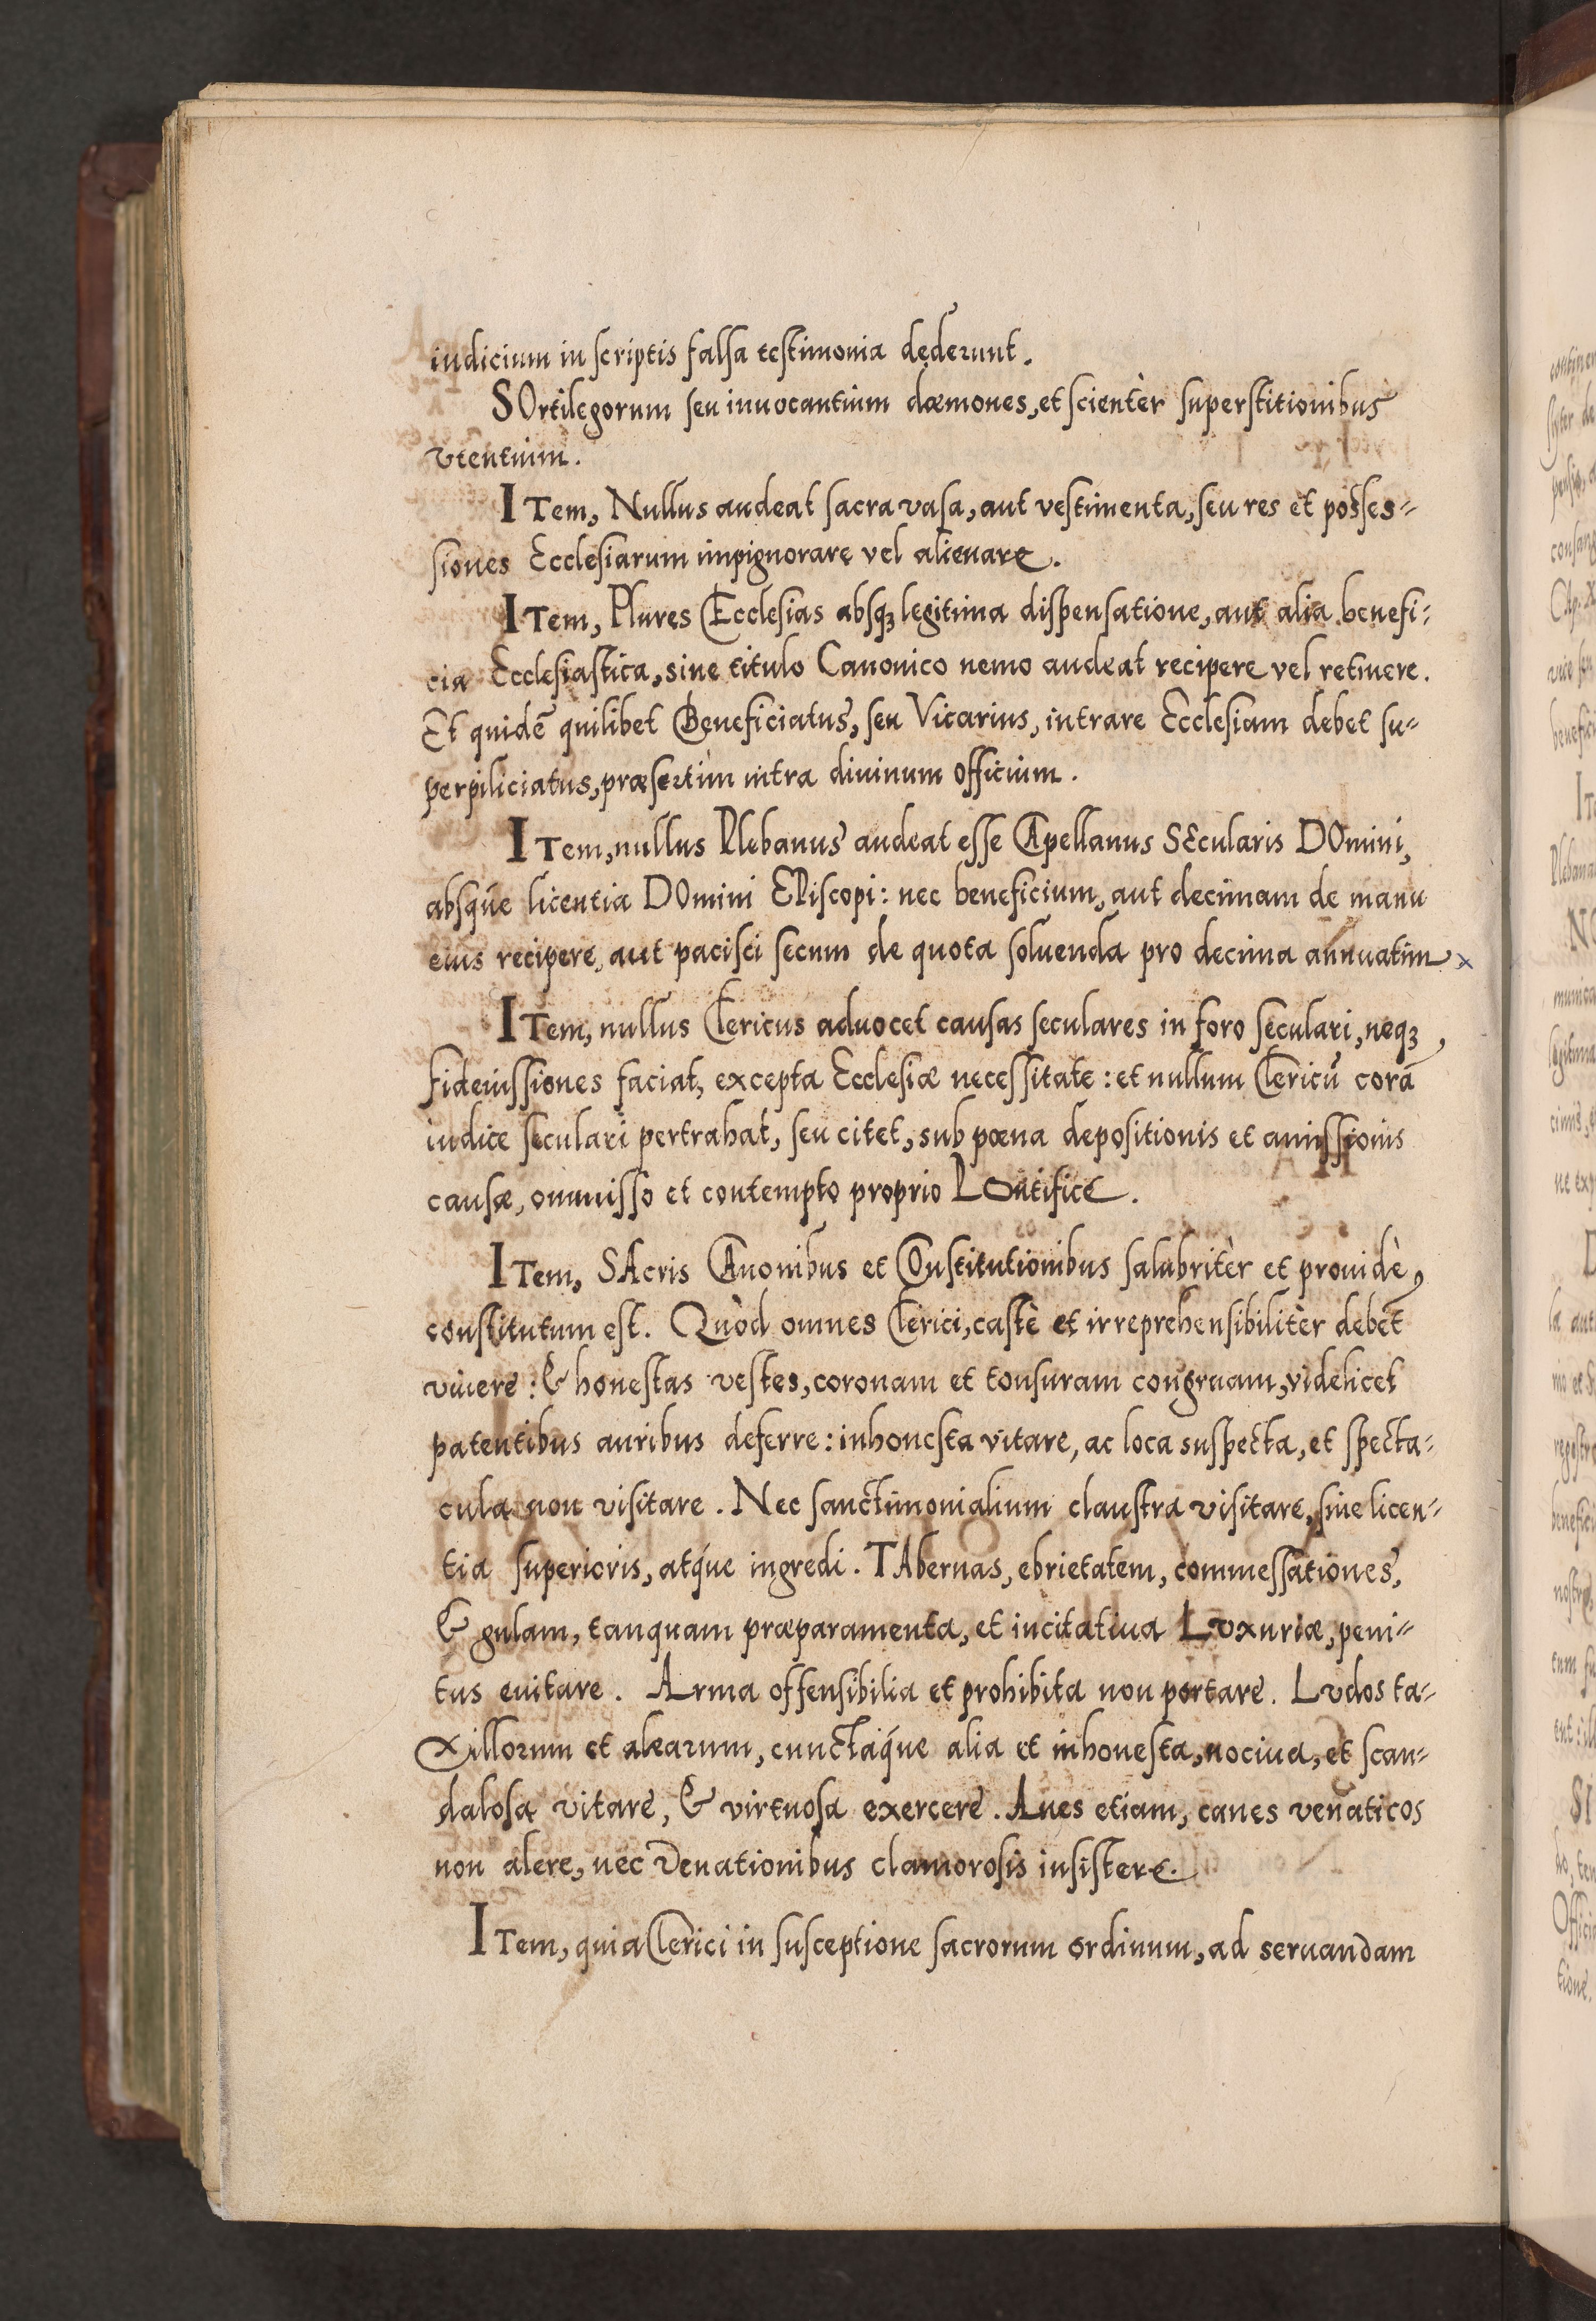 iudicium in scriptis falsa testimonia dederunt.
SOrtilegorum seu inuocantium dæmones, et scientèr superstitionibus
vtentium.
ITem, Nullus audeat sacra vasa, aut vestimenta, seu res et posses=
siones Ecclesiarum impignorare vel alienare.
ITem, Plures Ecclesias absqꝫ legitima dispensatione, aut alia benefi=
cia Ecclesiastica, sine titulo Canonico nemo audeat recipere vel retinere.
Et quidē quilibet Beneficiatus, seu Vicarius, intrare Ecclesiam debet su=
perpiliciatus, præsertim intra diuinum officium.
ITem, nullus Plebanus audeat esse CApellanus SEcularis DOmini,
absqúe licentia DOmini EPiscopi: nec beneficium, aut decimam de manu
eius recipere, aut pacisci secum de quota soluenda pro decima annuatim
ITem, nullus Clericus aduocet causas seculares in foro seculari, neqꝫ
fideiussiones faciat, excepta Ecclesiæ necessitate: et nullum Clericū corā
iudice seculari pertrahat, seu citet, sub pœna depositionis et amissionis
causæ, ommisso et contempto proprio POntifice.
ITem, SAcris CAnonibus et COnstitutionibus salubritèr et prouidè,
constitutum est. Quòd omnes Clerici, castè et irreprehensibilitèr debēt
viuere: & honestas vestes, coronam et tonsuram congruam, videlicet
patentibus auribus deferre: inhonesta vitare, ac loca suspecta, et specta=
cula non visitare. Nec sanctimonialium claustra visitare, sine licen=
tia superioris, atqúe ingredi. TAbernas, ebrietatem, commessationes,
& gulam, tanquam præparamenta, et incitatiua Lvxuriæ, peni=
tus euitare. Arma offensibilia et prohibita non portare. Lvdos ta=
xillorum et alearum, cunctaqúe alia et inhonesta, nociua, et scan=
dalosa vitare, & virtuosa exercere. Aues etiam, canes venaticos
non alere, nec Venationibus clamorosis insistere.
ITem, quia Clerici in susceptione sacrorum ordinum, ad seruandam